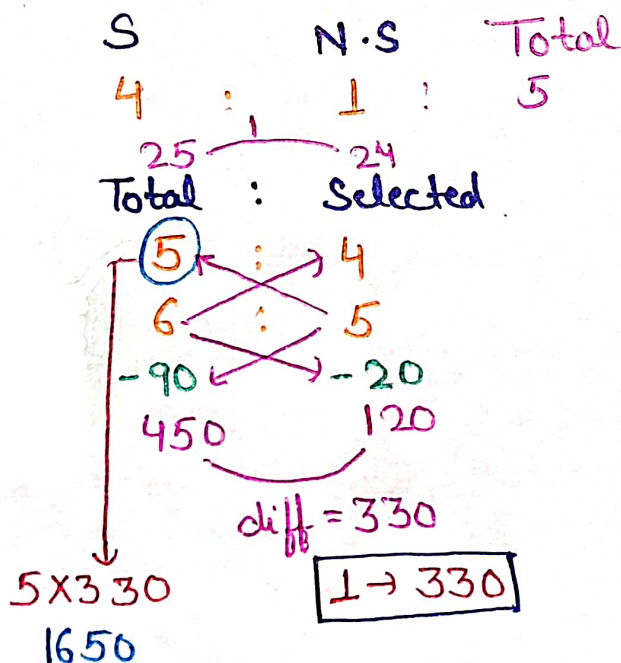 S N.S Total
4 : 1 : 5
1
25 24
Total : Selected
5 : 4
6 : 5
-90 -20
450 120
diff = 330
5X330 1→ 330
1650